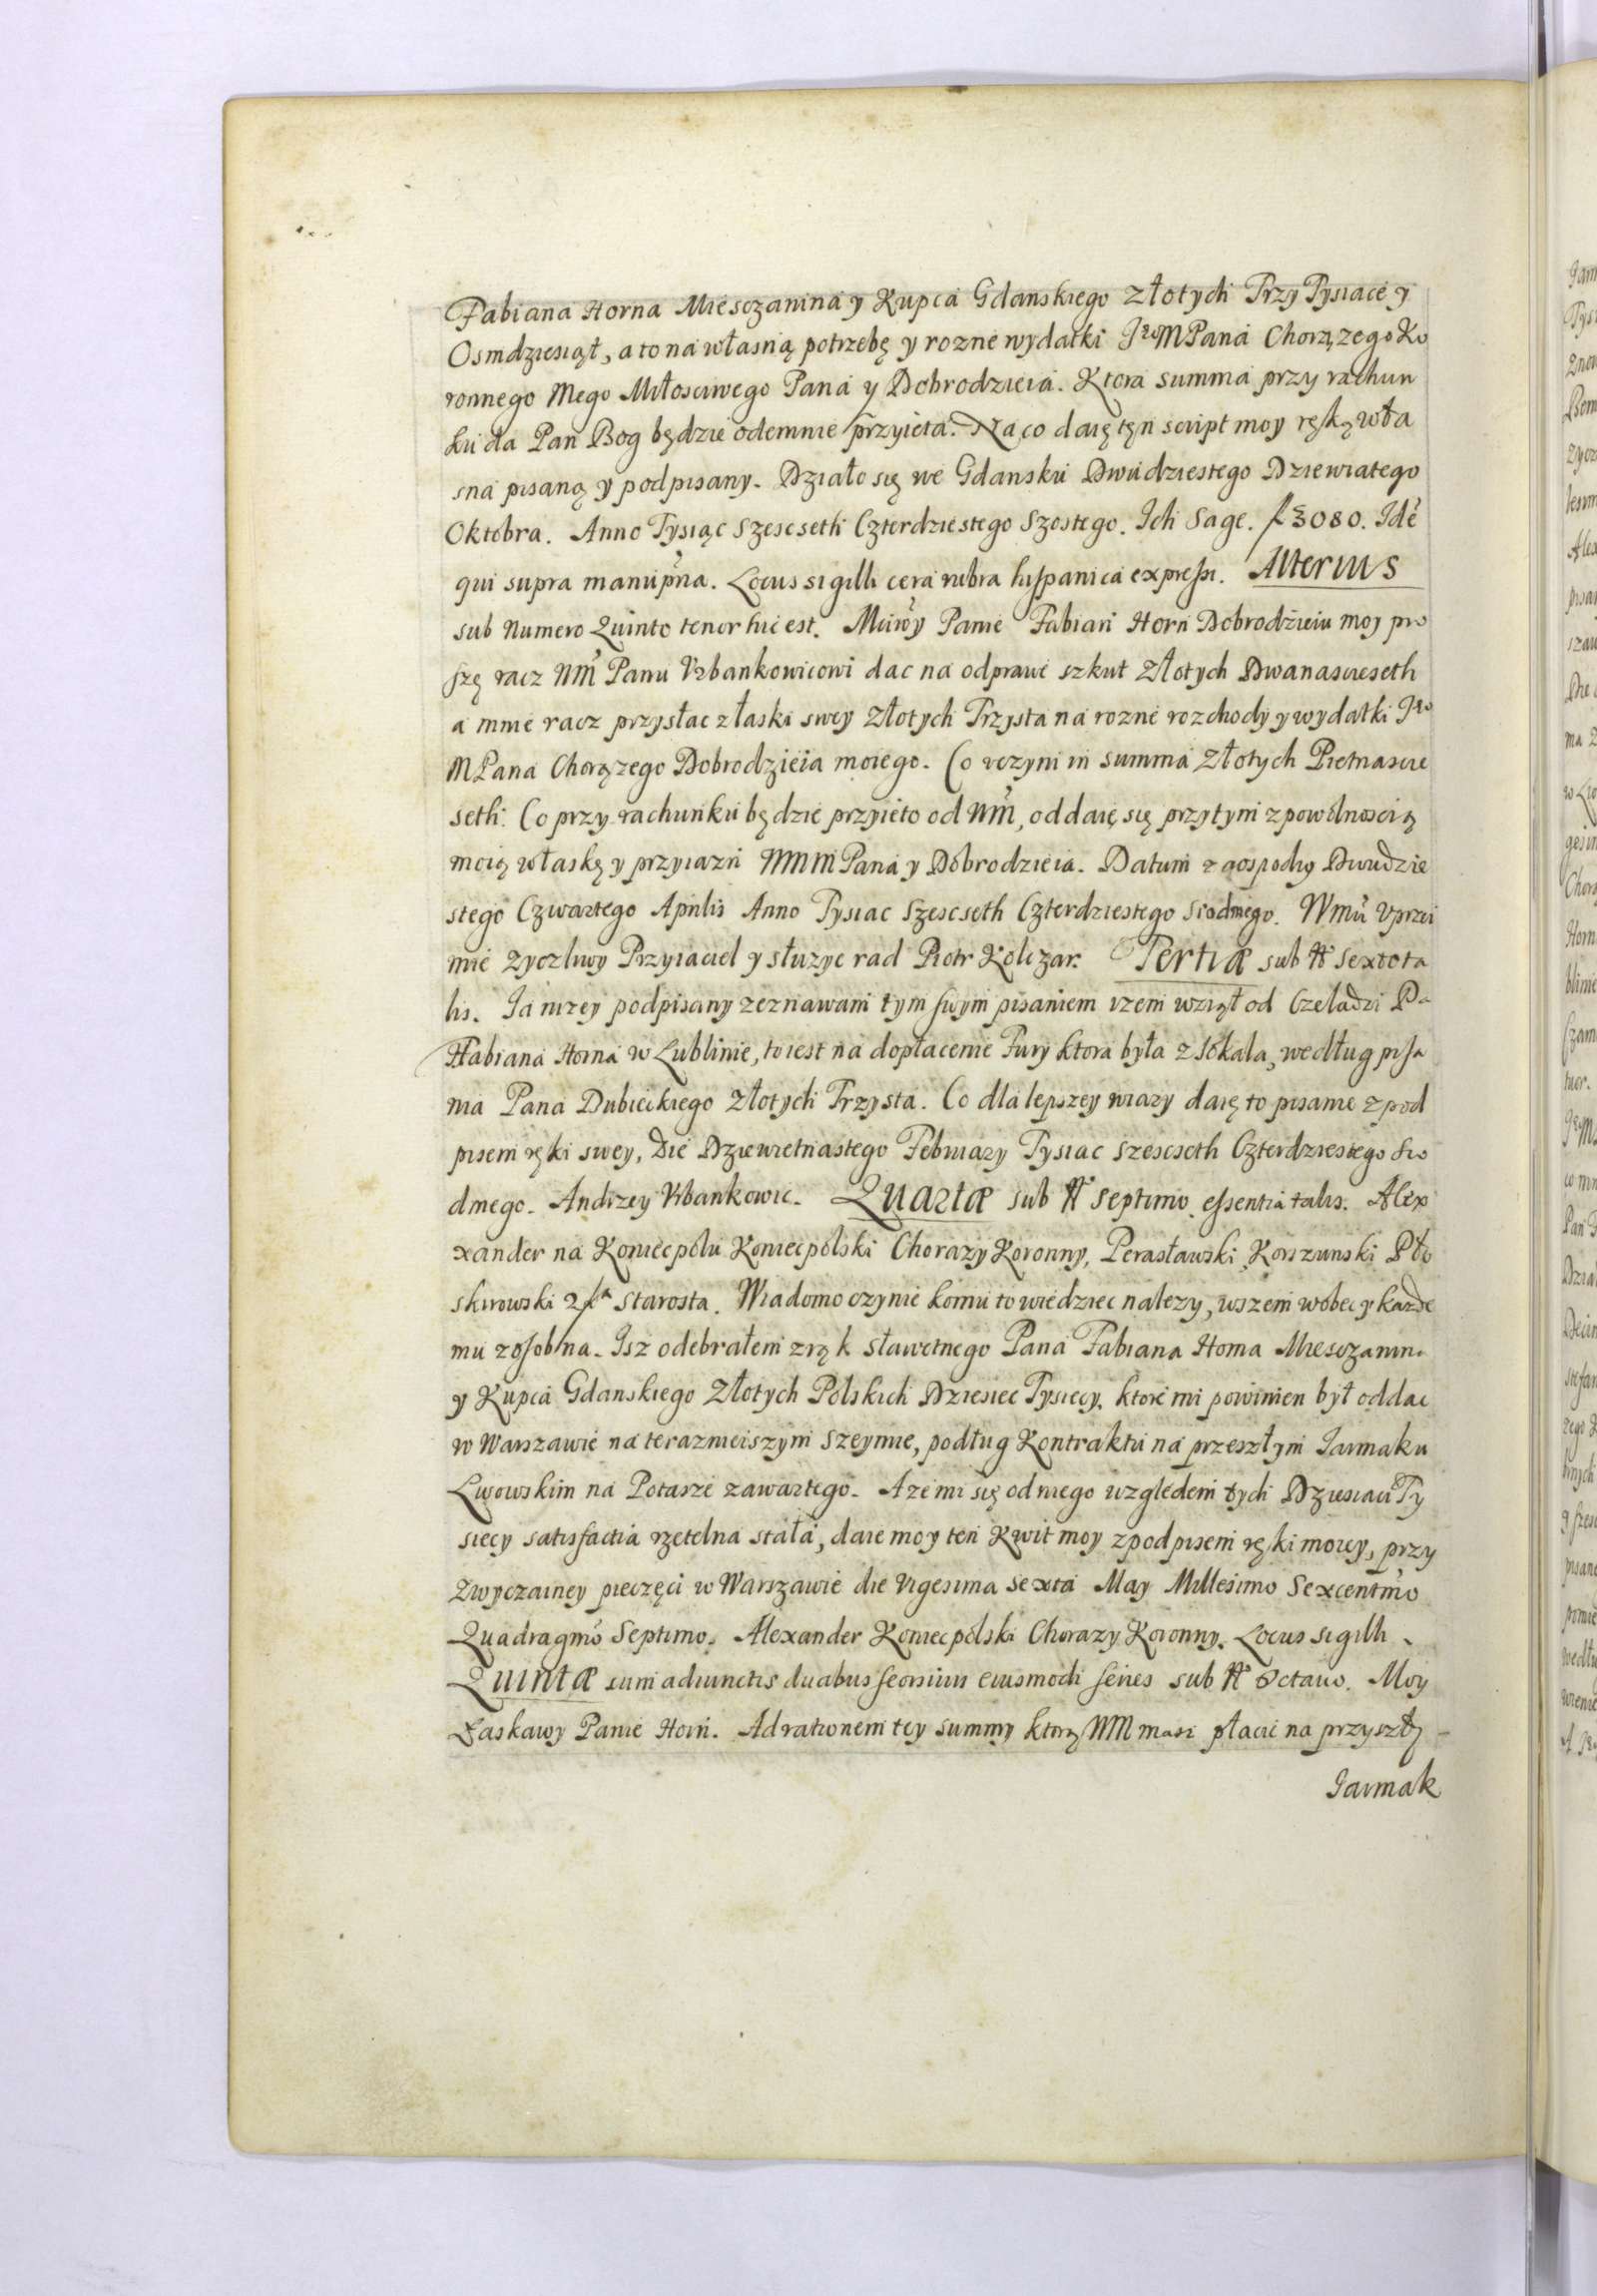 Fabiana Horna Miesczanina y Kupca Gdanskiego Złotych Trzy Tysiace y
Osmdziesiąt, a to na własną potrzebę y rozne wydatki JeoMPana Chorązego Ko
ronnego Mego Miłosciwego Pana y Dobrodzieia. Ktora summa przy rachun
ku da Pan Bog będzie odemnie przyięta. Na co daię tęn script moy ręką wła
sna pisaną y podpisany. Działo się we Gdansku Dwudziestego Dziewiatego
Oktobra. Anno Tysiąc Szescseth Czterdziestego Szostego. Ich Sage. f 3080. Idē
qui supra manu pp̄na. Locus sigilli cera rubra hispanica expressi. Alterius
sub Numero Quinto tenor hic est. Mciwy Panie Fabian Horn Dobrodzieiu moy pro
szę racz WM Panu Vrbankowicowi dac na odprawe szkut Złotych Dwanascieseth
a mnie racz przysłac z łaski swey Złotych Trzysta na rozne rozchody y wydatki Jeo
MPana Chorązego Dobrodzieia moiego. Co vczyni in summa Złotych Pietnascie
seth. Co przy rachunku będzie przyięto od WM, oddaię się przytym z powolnoscią
moią w łaskę y przyiazn WMM Pana y Dobrodzieia. Datum z gospody Dwudzie
stego Czwartego Aprilis Anno Tysiac Szescseth Czterdziestego Siodmego. WMci Vprzei
mie zyczliwy Przyiaciel y słuzyc rad Piotr Kolczar. Tertiæ sub No Sexto ta
lis. Ia nizey podpisany zeznawam tym swym pisaniem izem wziął od Czeladzi Pa
Fabiana Horna w Lublinie, to iest na dopłacenie Fury ktora była z Sokala, według pisa
ma Pana Dubieckiego Złotych Trzysta. Co dla lepszey wiary daię to pisanie z pod
pisem ręki swey, Die Dziewietnastego Februazy Tysiac Szescseth Czterdziestego Sio
dmego. Andrzey Vrbankowic. Quartæ sub No Septimo essentia talis. Alex
xander na Koniecpolu Koniecpolski Chorazy Koronny, Perasławski, Korszunski Pło
skirowski &a Starosta. Wiadomo czynie komu to wiedziec nalezy, wszem wobec y kazde
mu zosobna. Isz odebrałem z rąk sławetnego Pana Fabiana Horna Miesczanina
y Kupca Gdanskiego Złotych Polskich Dziesiec Tysięcy, ktore mi powinien był oddac
w Warszawie na terazniejszym Szeymie, podług Kontraktu na przeszłym Iarmaku
Lwowskim na Potasze zawartego. A ze mi się od niego względem tych Dziesiaci Ty
siecy satisfactia rzetelna stała, daie moy ten Kwit moy z podpisem ręki moiey, przy
Zwyczainey pieczęci w Warszawie die Vigesima Sexta May Millesimo Sexcentmo
Quadragmo Septimo. Alexander Koniecpolski Chorazy Koronny. Locus sigilli.
Quintæ cum adiunctis duabus seorsim eiusmodi series sub No Octauo. Moy
Łaskawy Panie Horn. Ad rationem tey summy ktorą WM masz płacic na przyszły
Iarmak